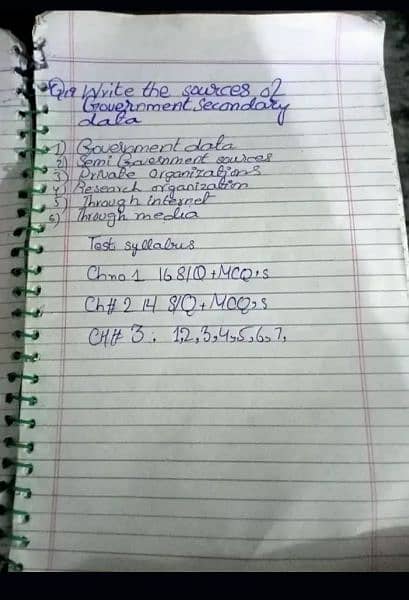 Q19 Write the sources of
Government Secondary
data
1) Government data
2) Semi Government sources
3) Private organizations
4) Research organization
5) Through internet
6) Through media
Test syllabus
Chno 1 16 S/Q + MCQ,s
Ch# 2 14 S/Q + MCQ,s
CH# 3 : 1,2,3,4,5,6,7,